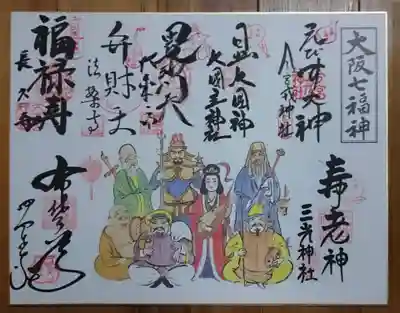 大阪七福神
えびす大神
今宮戎神社
大国神
大国主神社
毘沙門天
大乗坊
弁財天
法案寺
福禄寿
長久寺
寿老神
三光神社
布袋尊
四天王寺